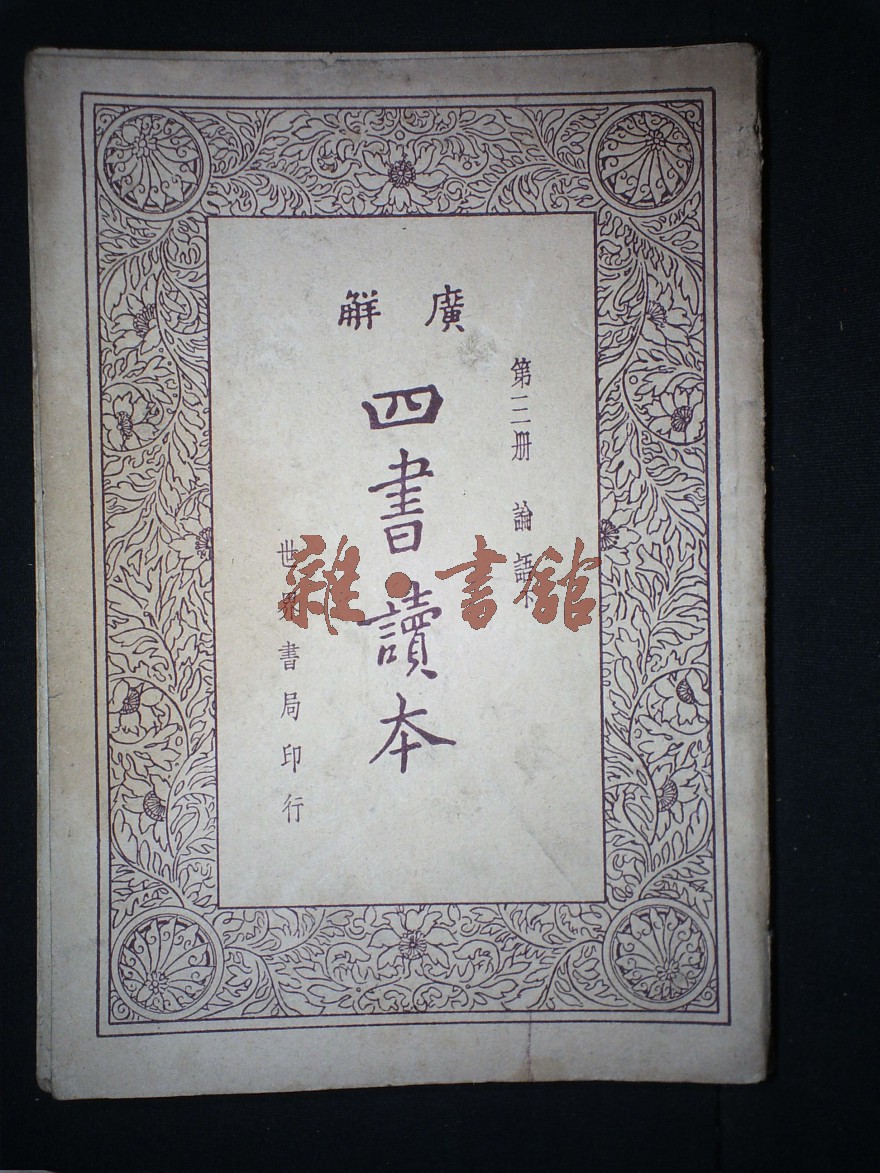 廣觧
第三册 論語下
四書讀本
世界書局印行
雜·書館